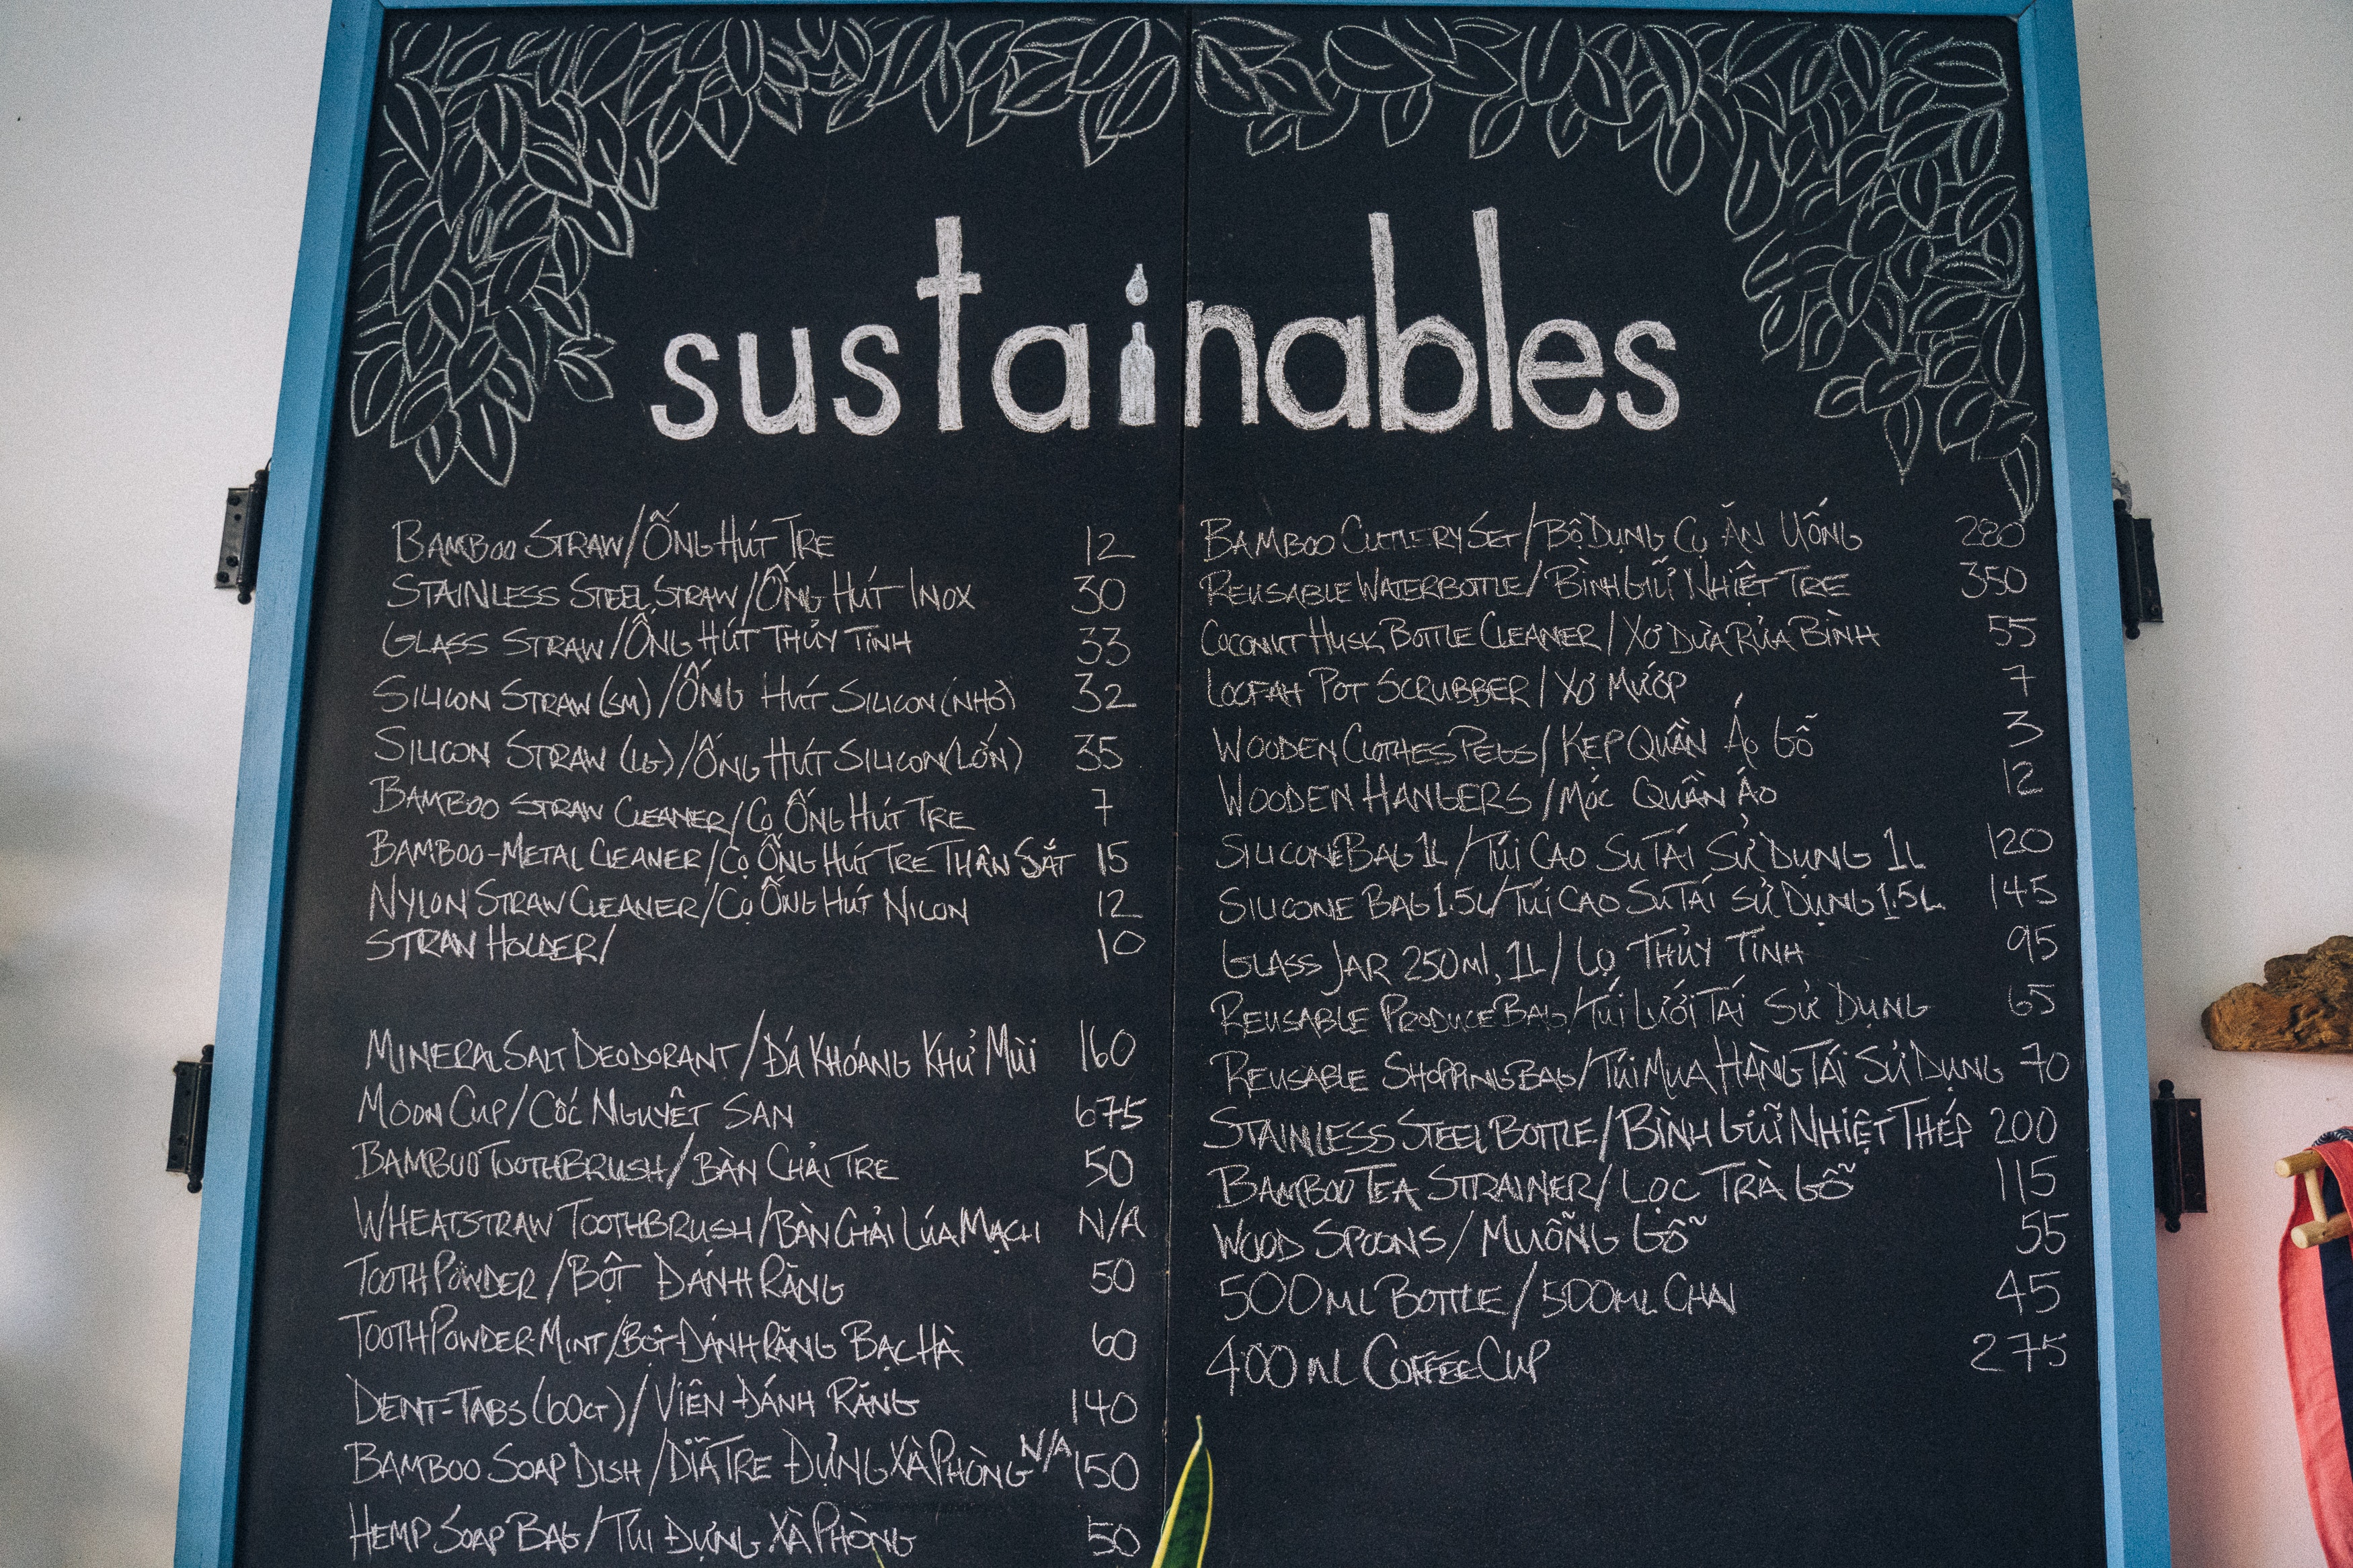 sustainables
BAMBOO STRAW/ỐNG HÚT TRE 12
STAINLESS STEEL STRAW/ỐNG HÚT INOX 30
GLASS STRAW/ỐNG HÚT THỦY TINH 33
SILICON STRAW (SM)/ỐNG HÚT SILICON (NHỎ) 32
SILICON STRAW (LG)/ỐNG HÚT SILICON (LỚN) 35
BAMBOO STRAW CLEANER/CỌ ỐNG HÚT TRE 7
BAMBOO-METAL CLEANER/CỌ ỐNG HÚT TRE THÂN SẮT 15
NYLON STRAW CLEANER/CỌ ỐNG HÚT NILON 12
STRAW HOLDER/ 10
MINERAL SALT DEODORANT/ĐÁ KHOÁNG KHỬ MÙI 160
MOON CUP/CỐC NGUYỆT SAN 675
BAMBOO TOOTHBRUSH/BÀN CHẢI TRE 50
WHEATSTRAW TOOTHBRUSH/BÀN CHẢI LÚA MẠCH N/A
TOOTH POWDER/BỘT ĐÁNH RĂNG 50
TOOTH POWDER-MINT/BỘT ĐÁNH RĂNG BẠC HÀ 60
DENT-TABS (60CT)/VIÊN ĐÁNH RĂNG 140
BAMBOO SOAP DISH/DĨA TRE ĐỰNG XÀ PHÒNG N/A 150
HEMP SOAP BAG/TÚI ĐỰNG XÀ PHÒNG 50
BAMBOO CUTLERY SET/BỘ DỤNG CỤ ĂN UỐNG 280
REUSABLE WATERBOTTLE/BÌNH GIỮ NHIỆT TRE 350
COCONUT HUSK BOTTLE CLEANER/XƠ DỪA RỬA BÌNH 55
LOOFAH POT SCRUBBER/XƠ MƯỚP 7
WOODEN CLOTHES PEGS/KẸP QUẦN ÁO GỖ 3
WOODEN HANGERS/MÓC QUẦN ÁO 12
SILICONE BAG 1L/TÚI CAO SU TÁI SỬ DỤNG 1L 120
SILICONE BAG 1.5L/TÚI CAO SU TÁI SỬ DỤNG 1.5L 145
GLASS JAR 250ml, 1L/LỌ THỦY TINH 95
REUSABLE PRODUCE BAG/TÚI LƯỚI TÁI SỬ DỤNG 65
REUSABLE SHOPPING BAG/TÚI MUA HÀNG TÁI SỬ DỤNG 70
STAINLESS STEEL BOTTLE/BÌNH GIỮ NHIỆT THÉP 200
BAMBOO TEA STRAINER/LỌC TRÀ GỖ 115
WOOD SPOONS/MUỖNG GỖ 55
500ML BOTTLE/500ML CHAI 45
400 ML COFFEE CUP 275